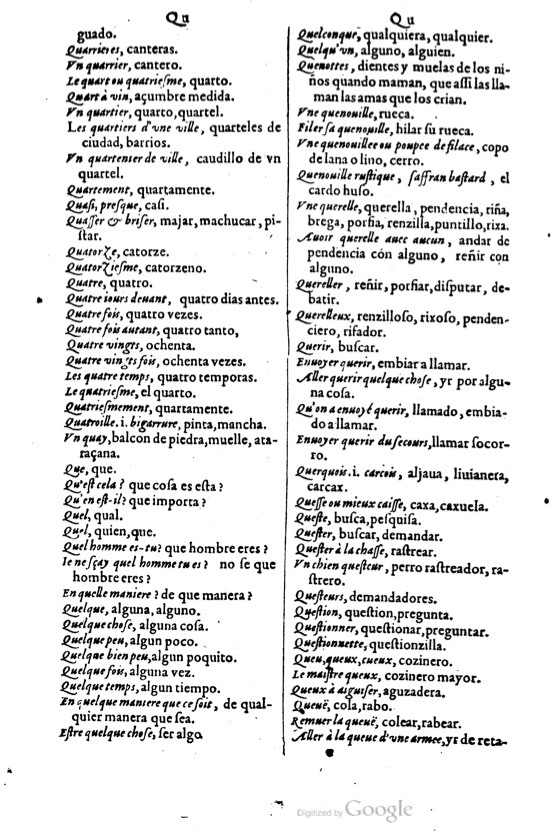 Qu
guado.
Quarrieres, canteras.
Vn quarrier, cantero.
Le quart ou quatriesme, quarto.
Quart à vin, açumbre medida.
Vn quartier, quarto, quartel.
Les quartiers d'vne ville, quarteles de
ciudad, barrios.
Vn quartenier de ville, caudillo de vn
quartel.
Quartement, quartamente.
Quasi, presque, casi.
Quasser & briser, majar, machucar, pi-
star.
Quatorze, catorze.
Quatorziesme, catorzeno.
Quatre, quatro.
Quatre iours deuant, quatro dias antes.
Quatre fois, quatro vezes.
Quatre fois autant, quatro tanto,
Quatre vingts, ochenta.
Quatre vingts fois, ochenta vezes.
Les quatre temps, quatro temporas.
Le quatriesme, el quarto.
Quatriesmement, quartamente.
Quatroille. i. bigarrure, pinta, mancha.
Vn quay, balcon de piedra, muelle, ata-
raçana.
Que, que.
Qu'est cela? que cosa es esta?
Qu'en est-il? que importa?
Quel, qual.
Quel, quien, que.
Quel homme es-tu? que hombre eres?
Ie ne sçay quel homme tu es? no se que
hombre eres?
En quelle maniere? de que manera?
Quelque, alguna, alguno.
Quelque chose, alguna cosa.
Quelque peu, algun poco.
Quelque bien peu, algun poquito.
Quelque fois, alguna vez.
Quelque temps, algun tiempo.
En quelque maniere que ce soit, de qual-
quier manera que sea.
Estre quelque chose, ser algo
Qu
Quelconque, qualquiera, qualquier.
Quelqu'vn, alguno, alguien.
Quenottes, dientes y muelas de los ni-
ños quando maman, que assi las lla-
man las amas que los crian.
Vne quenouille, rueca.
Filer sa quenouille, hilar su rueca.
Vne quenouillee ou poupee de filace, copo
de lana o lino, cerro.
Quenouille rustique, saffran bastard, el
cardo huso.
Vne querelle, querella, pendencia, riña,
brega, porfia, renzilla, puntillo, rixa.
Auoir querelle auec aucun, andar de
pendencia còn alguno, reñir con
alguno.
Quereller, reñir, porfiar, disputar, de-
batir.
Querelleux, renzilloso, rixoso, penden-
ciero, rifador.
Querir, buscar.
Enuoyer querir, embiar a llamar.
Aller querir quelque chose, yr por algu-
na cosa.
Qu'on a enuoyé querir, llamado, embia-
do a llamar.
Enuoyer querir du secours, llamar socor-
ro.
Querquois. i. carcois, aljaua, liuianera,
carcax.
Quesse ou mieux caisse, caxa, caxuela.
Queste, busca, pesquisa.
Quester, buscar, demandar.
Quester à la chasse, rastrear.
Vn chien questeur, perro rastreador, ra-
strero.
Questeurs, demandadores.
Question, question, pregunta.
Questionner, questionar, preguntar.
Questionnette, questionzilla.
Queu, queux, cueux, cozinero.
Le maistre queux, cozinero mayor.
Queux à aiguiser, aguzadera.
Queuë, cola, rabo.
Remuer la queuë, colear, rabear.
Aller à la queue d'vne armee, yr de reta-
Digitized by Google